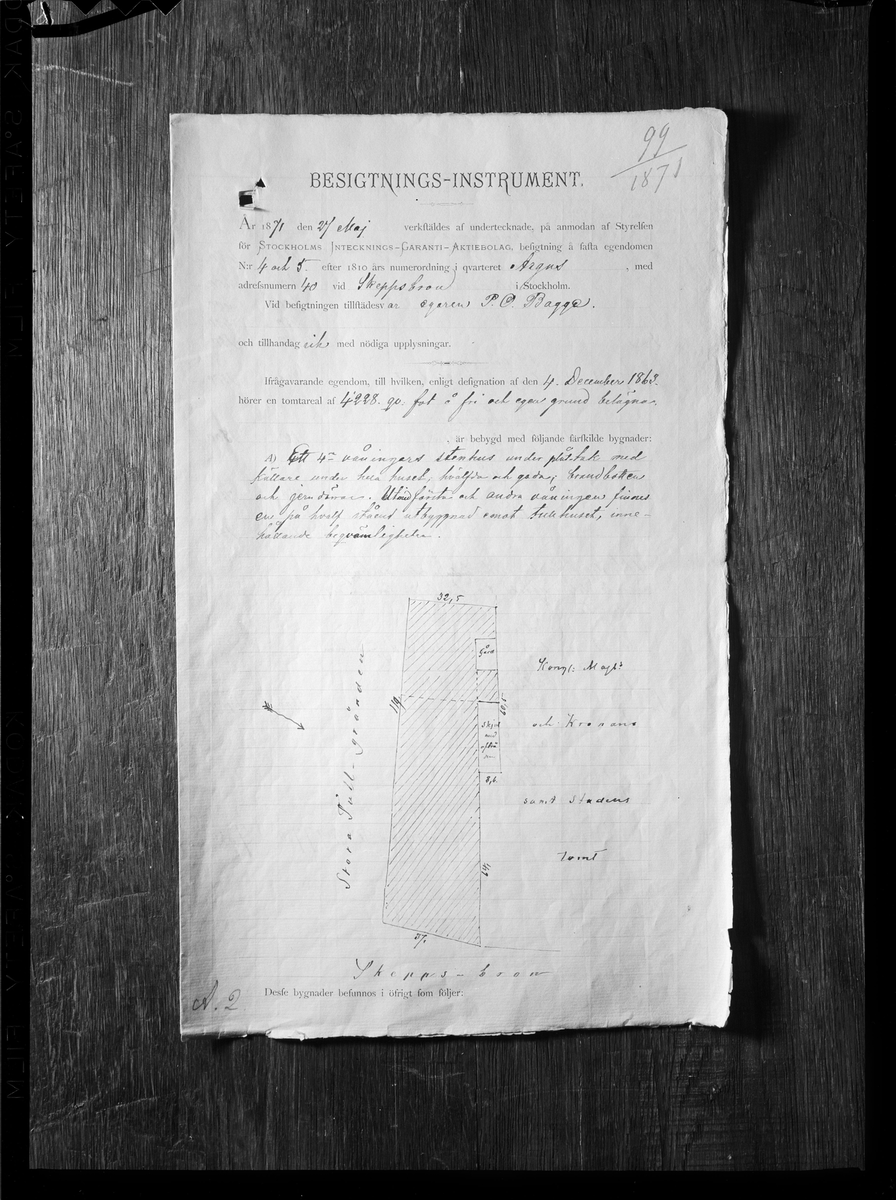 99
1871
BESIGTNINGS-INSTRUMENT.
År 1871 den 27 Maj verkställdes af undertecknade, på anmodan af Styrelsen
för STOCKHOLMS INTECKNINGS-GARANTI-AKTIEBOLAG, besigtning å fasta egendomen
N:r 4 och 5. efter 1810 års numerordning i qvarteret Argus, med
adressnumern 40 vid Skeppsbron i Stockholm.
Vid besigtningen tillstädesvar egaren P. C. Bagge.
och tillhandag med nödiga upplysningar.
Ifrågavarande egendom, till hvilken, enligt designation af den 4. December 1863.
hörer en tomtareal af 4228. qv. fot å fri och egen grund belägna.
, är bebygd med följande särskilde bygnader:
A) Ett 4 våningars stenhus under plåttak med
källare under hela huset, hvälfda och goda; brandbotten
och jerndörrar. Utmed första och andra våningen finnes
en på hvalf stående utbyggnad emot tullhuset, inne-
hållande beqvämligheter.
32,5
Gård
Kongl: Maj:ts
119
60,5
och Kronans
Stora Tull-gränden
8,6
samt Stadens
Tomt
64,
37,
Skepps-bron
Desse bygnader befunnos i öfrigt som följer:
A. 2
KODAK SAFETY FILM